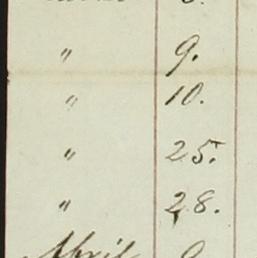 " 9.
" 10.
" 25.
" 28.
April